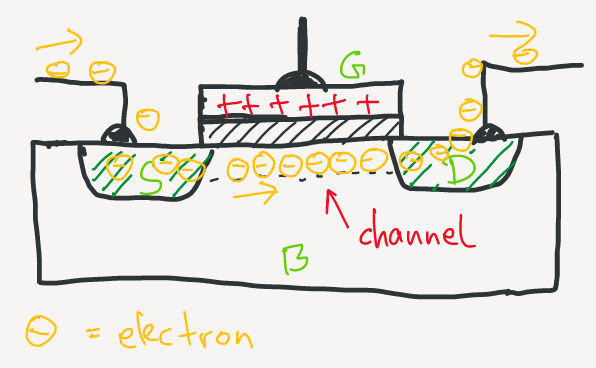 G
++++++
S
D
channel
B
⊖ = electron